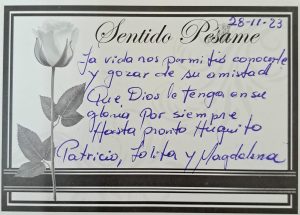 28-11-23
Sentido Pésame
La vida nos permitió conocerte
y gozar de su amistad
Que Dios lo tenga en su
gloria por siempre
Hasta pronto Huguito
Patricio, Lolita y Magdalena